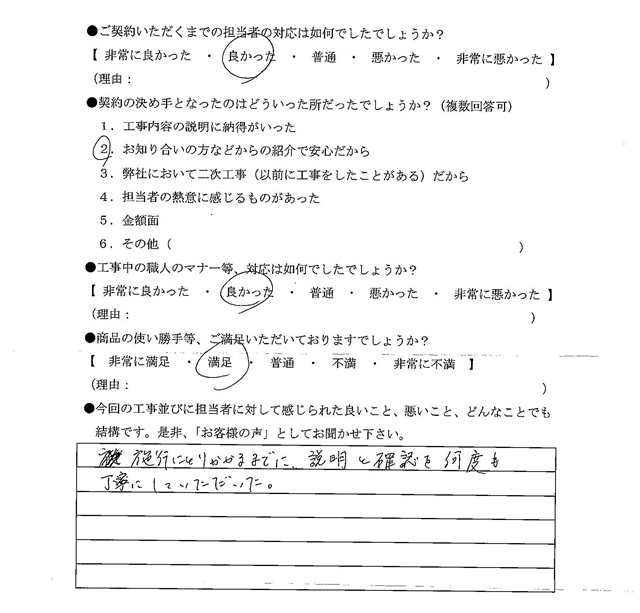 ●ご契約いただくまでの担当者の対応は如何でしたでしょうか？
【 非常に良かった ・ 良かった ・ 普通 ・ 悪かった ・ 非常に悪かった 】
（理由： ）
●契約の決め手となったのはどういった所だったでしょうか？（複数回答可）
１．工事内容の説明に納得がいった
２．お知り合いの方などからの紹介で安心だから
３．弊社において二次工事（以前に工事をしたことがある）だから
４．担当者の熱意に感じるものがあった
５．金額面
６．その他（ ）
●工事中の職人のマナー等、対応は如何でしたでしょうか？
【 非常に良かった ・ 良かった ・ 普通 ・ 悪かった ・ 非常に悪かった 】
（理由： ）
●商品の使い勝手等、ご満足いただいておりますでしょうか？
【 非常に満足 ・ 満足 ・ 普通 ・ 不満 ・ 非常に不満 】
（理由： ）
●今回の工事並びに担当者に対して感じられた良いこと、悪いこと、どんなことでも
結構です。是非、「お客様の声」としてお聞かせ下さい。
施行にとりかかるまでに、説明と確認を何度も
丁寧にしていただいた。